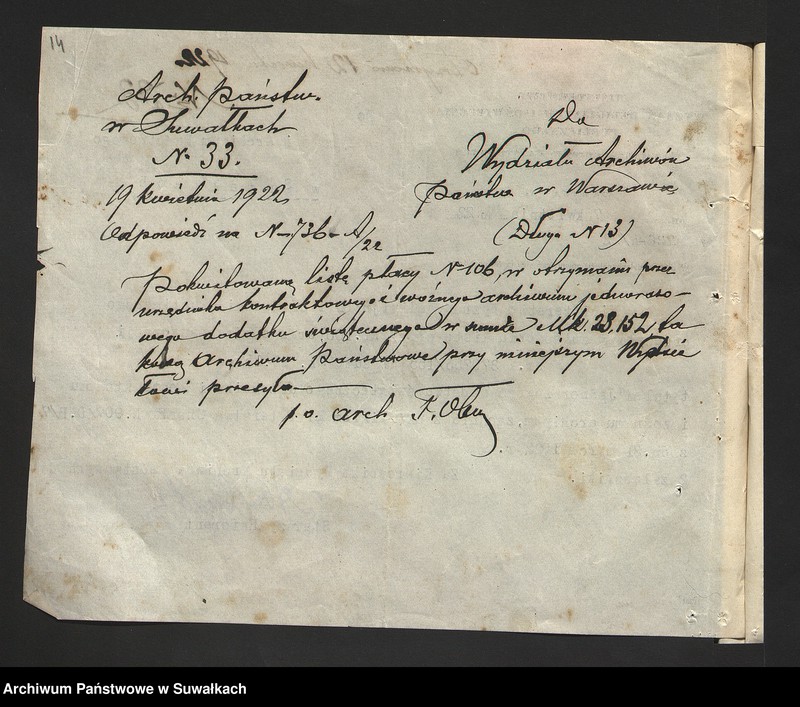 14
Arch. Państw.
w Suwałkach
№ 33.
19 kwietnia 1922
Odpowiedź na № 736-A/22
Do
Wydziału Archiwów
Państw w Warszawie
(Długa № 13)
Pokwitowaną listę płacy № 106, w otrzymaniu przez
urzędnika kontraktowego i woźnego archiwum jednorazo-
wego dodatku świątecznego w sumie Mk. 23.152 ta
Archiwum Państwowe przy niniejszym Wydzia
łowi przesyła
p.o. arch F.
Archiwum Państwowe w Suwałkach